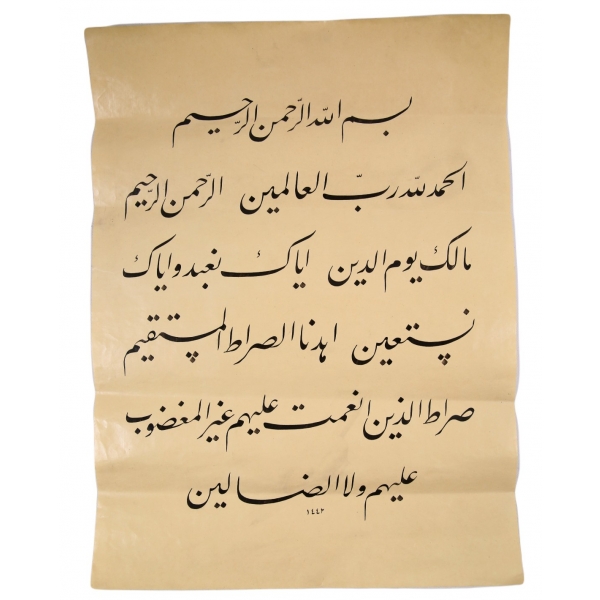 بسم الله الرّحمن الرّحيم
الحمد لله ربّ العالمين الرّحمن الرّحيم
مالك يوم الدين اياك نعبد واياك
نستعين اهدنا الصراط المستقيم
صراط الذين انعمت عليهم غير المغضوب
عليهم ولا الضالين
١٤٤٢